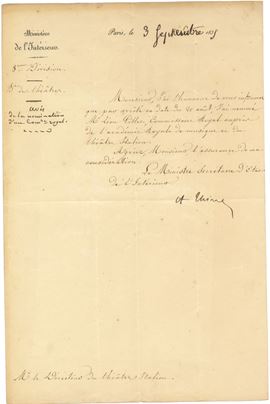 Ministère
de l'Intérieur.
Paris, le 3 Septembre 1835
Division.
de théâtres.
avis
de la nomination
d'un Com.re royal.
Monsieur, j'ai l'honneur de vous informer
que par arrêté en date du 31 août j'ai nommé
Mr Léon Pillet, Commissaire Royal auprès
de l'académie Royale de musique et du
théâtre Italien.
Agréez, Monsieur, l'assurance de ma
considération.
Le Ministre Secrétaire d'Etat
de l'Intérieur
A Thiers
Mr le Directeur du théâtre Italien.